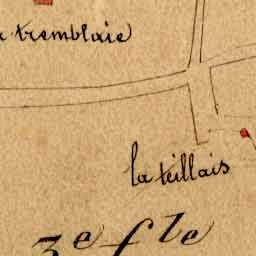 a tremblaie
la teillais
3e fle